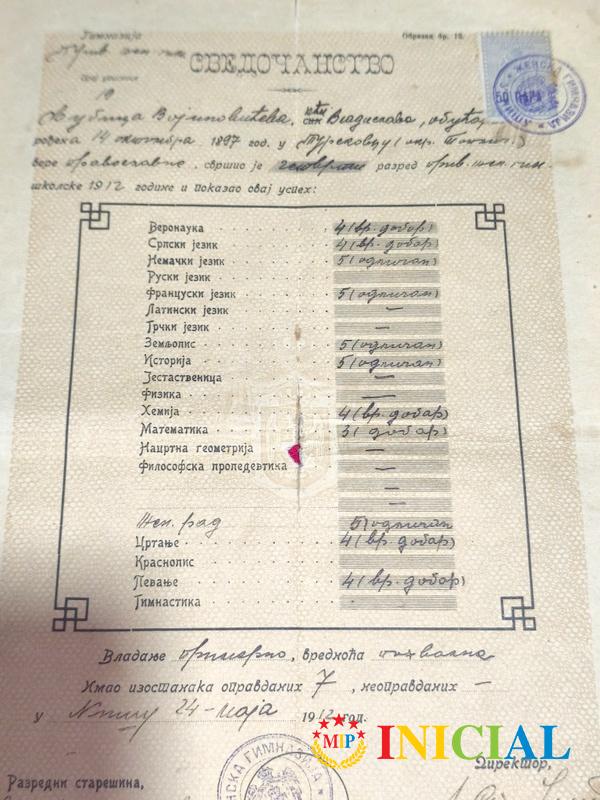 Гимназија
Прив. жен. гим.
Образац бр. 18.
СВЕДОЧАНСТВО
Број уписнице
19
ЖЕНСКА ГИМНАЗИЈА
Љубица Војиновићева, кћи Владислава, обућар
рођена 14 октобра 1897 год. у
вере православне, свршио је четврти разред прив. жен. гим.
школске 1912 године и показао овај успех:
Веронаука 4 (вр. добар)
Српски језик 4 (вр. добар)
Немачки језик 5 (одличан)
Руски језик
Француски језик 5 (одличан)
Латински језик —
Грчки језик —
Земљопис 5 (одличан)
Историја 5 (одличан)
Јестаственица —
Физика —
Хемија 4 (вр. добар)
Математика 3 (добар)
Нацртна геометрија —
Философска пропедевтика —
—
—
Жен. рад 5 (одличан
Цртање 4 (вр. добар)
Краснопис
Певање 4 (вр. добар)
Гимнастика
Владање примерно, вредноћа похвална
Имао изостанака оправданих 7, неоправданих —
у Нишу 24-маја 1912 год.
MIP INICIAL
НСКА ГИМНАЗИЈА
Директор,
Разредни старешина,